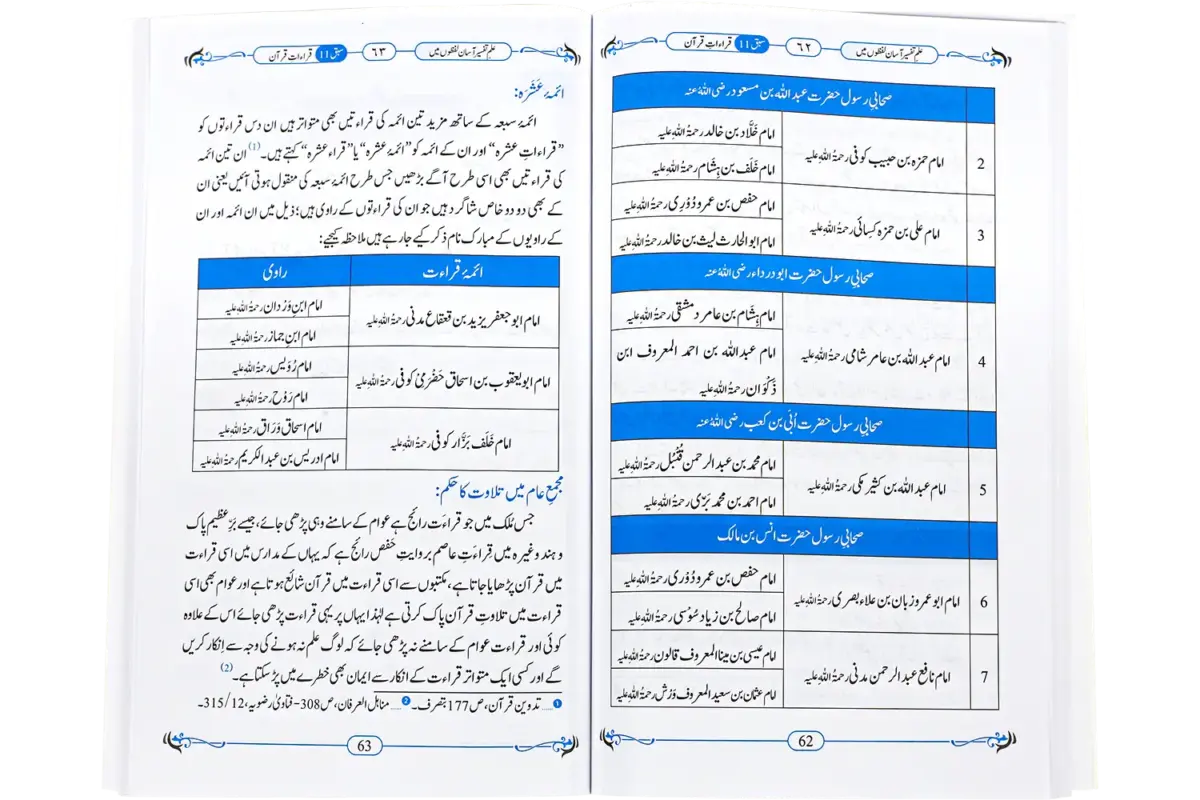 علم تفسیر آسان لفظوں میں ٦٢ سبق 11 قراءاتِ قرآن
صحابیِ رسول حضرت عبد اللہ بن مسعود رضی اللہُ عنہ
2 امام حمزہ بن حبیب کوفی رحمۃُ اللہِ علیہ امام خَلَّاد بن خالد رحمۃُ اللہِ علیہ
امام خَلَف بن ہِشَام رحمۃُ اللہِ علیہ
3 امام علی بن حمزہ کِسائی رحمۃُ اللہِ علیہ امام حفص بن عمرو دُوری رحمۃُ اللہِ علیہ
امام ابو الحارث لیث بن خالد رحمۃُ اللہِ علیہ
صحابیِ رسول حضرت ابو درداء رضی اللہُ عنہ
4 امام عبد اللہ بن عامر شامی رحمۃُ اللہِ علیہ امام ہِشَام بن عامر دمشقی رحمۃُ اللہِ علیہ
امام عبد اللہ بن احمد المعروف ابن
ذَکْوَان رحمۃُ اللہِ علیہ
صحابیِ رسول حضرت اُبَی بن کعب رضی اللہُ عنہ
5 امام عبد اللہ بن کثیر مکی رحمۃُ اللہِ علیہ امام محمد بن عبد الرحمن قُنْبُل رحمۃُ اللہِ علیہ
امام احمد بن محمد بَزّی رحمۃُ اللہِ علیہ
صحابیِ رسول حضرت انس بن مالک
6 امام ابو عمرو زبان بن علاء بصری رحمۃُ اللہِ علیہ امام حفص بن عمرو دُوْری رحمۃُ اللہِ علیہ
امام صالح بن زیاد سُوْسی رحمۃُ اللہِ علیہ
7 امام نافع عبد الرحمن مدنی رحمۃُ اللہِ علیہ امام عیسیٰ بن مینا المعروف قالون رحمۃُ اللہِ علیہ
امام عثمان بن سعید المعروف وَرْش رحمۃُ اللہِ علیہ
62
علم تفسیر آسان لفظوں میں ٦٣ سبق 11 قراءاتِ قرآن
ائمۂ عَشَرَہ:
ائمۂ سبعہ کے ساتھ مزید تین ائمہ کی قراءتیں بھی متواتر ہیں ان دس قراءتوں کو
”قراءاتِ عشرہ“ اور ان کے ائمہ کو ”ائمۂ عشرہ“ یا ”قراء عشرہ“ کہتے ہیں۔(1) ان تین ائمہ
کی قراءتیں بھی اسی طرح آگے بڑھیں جس طرح ائمۂ سبعہ کی منقول ہوتی آئیں یعنی ان
کے بھی دو دو خاص شاگرد ہیں جو ان کی قراءتوں کے راوی ہیں؛ ذیل میں ان ائمہ اور ان
کے راویوں کے مبارک نام ذکر کیے جا رہے ہیں ملاحظہ کیجیے:
ائمۂ قراءت راوی
امام ابو جعفر یزید بن قعقاع مدنی رحمۃُ اللہِ علیہ امام ابنِ وَرْدان رحمۃُ اللہِ علیہ
امام ابنِ جماز رحمۃُ اللہِ علیہ
امام ابو یعقوب بن اسحاق حَضْرَمِیْ کوفی رحمۃُ اللہِ علیہ امام رُوَیس رحمۃُ اللہِ علیہ
امام رَوْح رحمۃُ اللہِ علیہ
امام خَلَف بَزَّار کوفی رحمۃُ اللہِ علیہ امام اسحاق وَرَاق رحمۃُ اللہِ علیہ
امام ادریس بن عبد الکریم رحمۃُ اللہِ علیہ
مجمعِ عام میں تلاوت کا حکم:
جس مُلک میں جو قراءَت رائج ہے عوام کے سامنے وہی پڑھی جائے، جیسے بَرِّ عظیم پاک
و ہند وغیرہ میں قِراءَتِ عاصم بروایتِ حَفص رائج ہے کہ یہاں کے مدارس میں اسی قراءت
میں قرآن پڑھایا جاتا ہے، مکتبوں سے اسی قراءت میں قرآن شائع ہوتا ہے اور عوام بھی اسی
قراءت میں تلاوتِ قرآنِ پاک کرتی ہے لہٰذا یہاں پر یہی قراءت پڑھی جائے اس کے علاوہ
کوئی اور قراءت عوام کے سامنے نہ پڑھی جائے کہ لوگ علم نہ ہونے کی وجہ سے اِنکار کریں
گے اور کسی ایک متواتر قراءت کے انکار سے ایمان بھی خطرے میں پڑ سکتا ہے۔(2)
1..... تدوین قرآن، ص177 بتصرف۔ 2..... مناہل العرفان، ص308- فتاویٰ رضویہ، 12/315۔
63